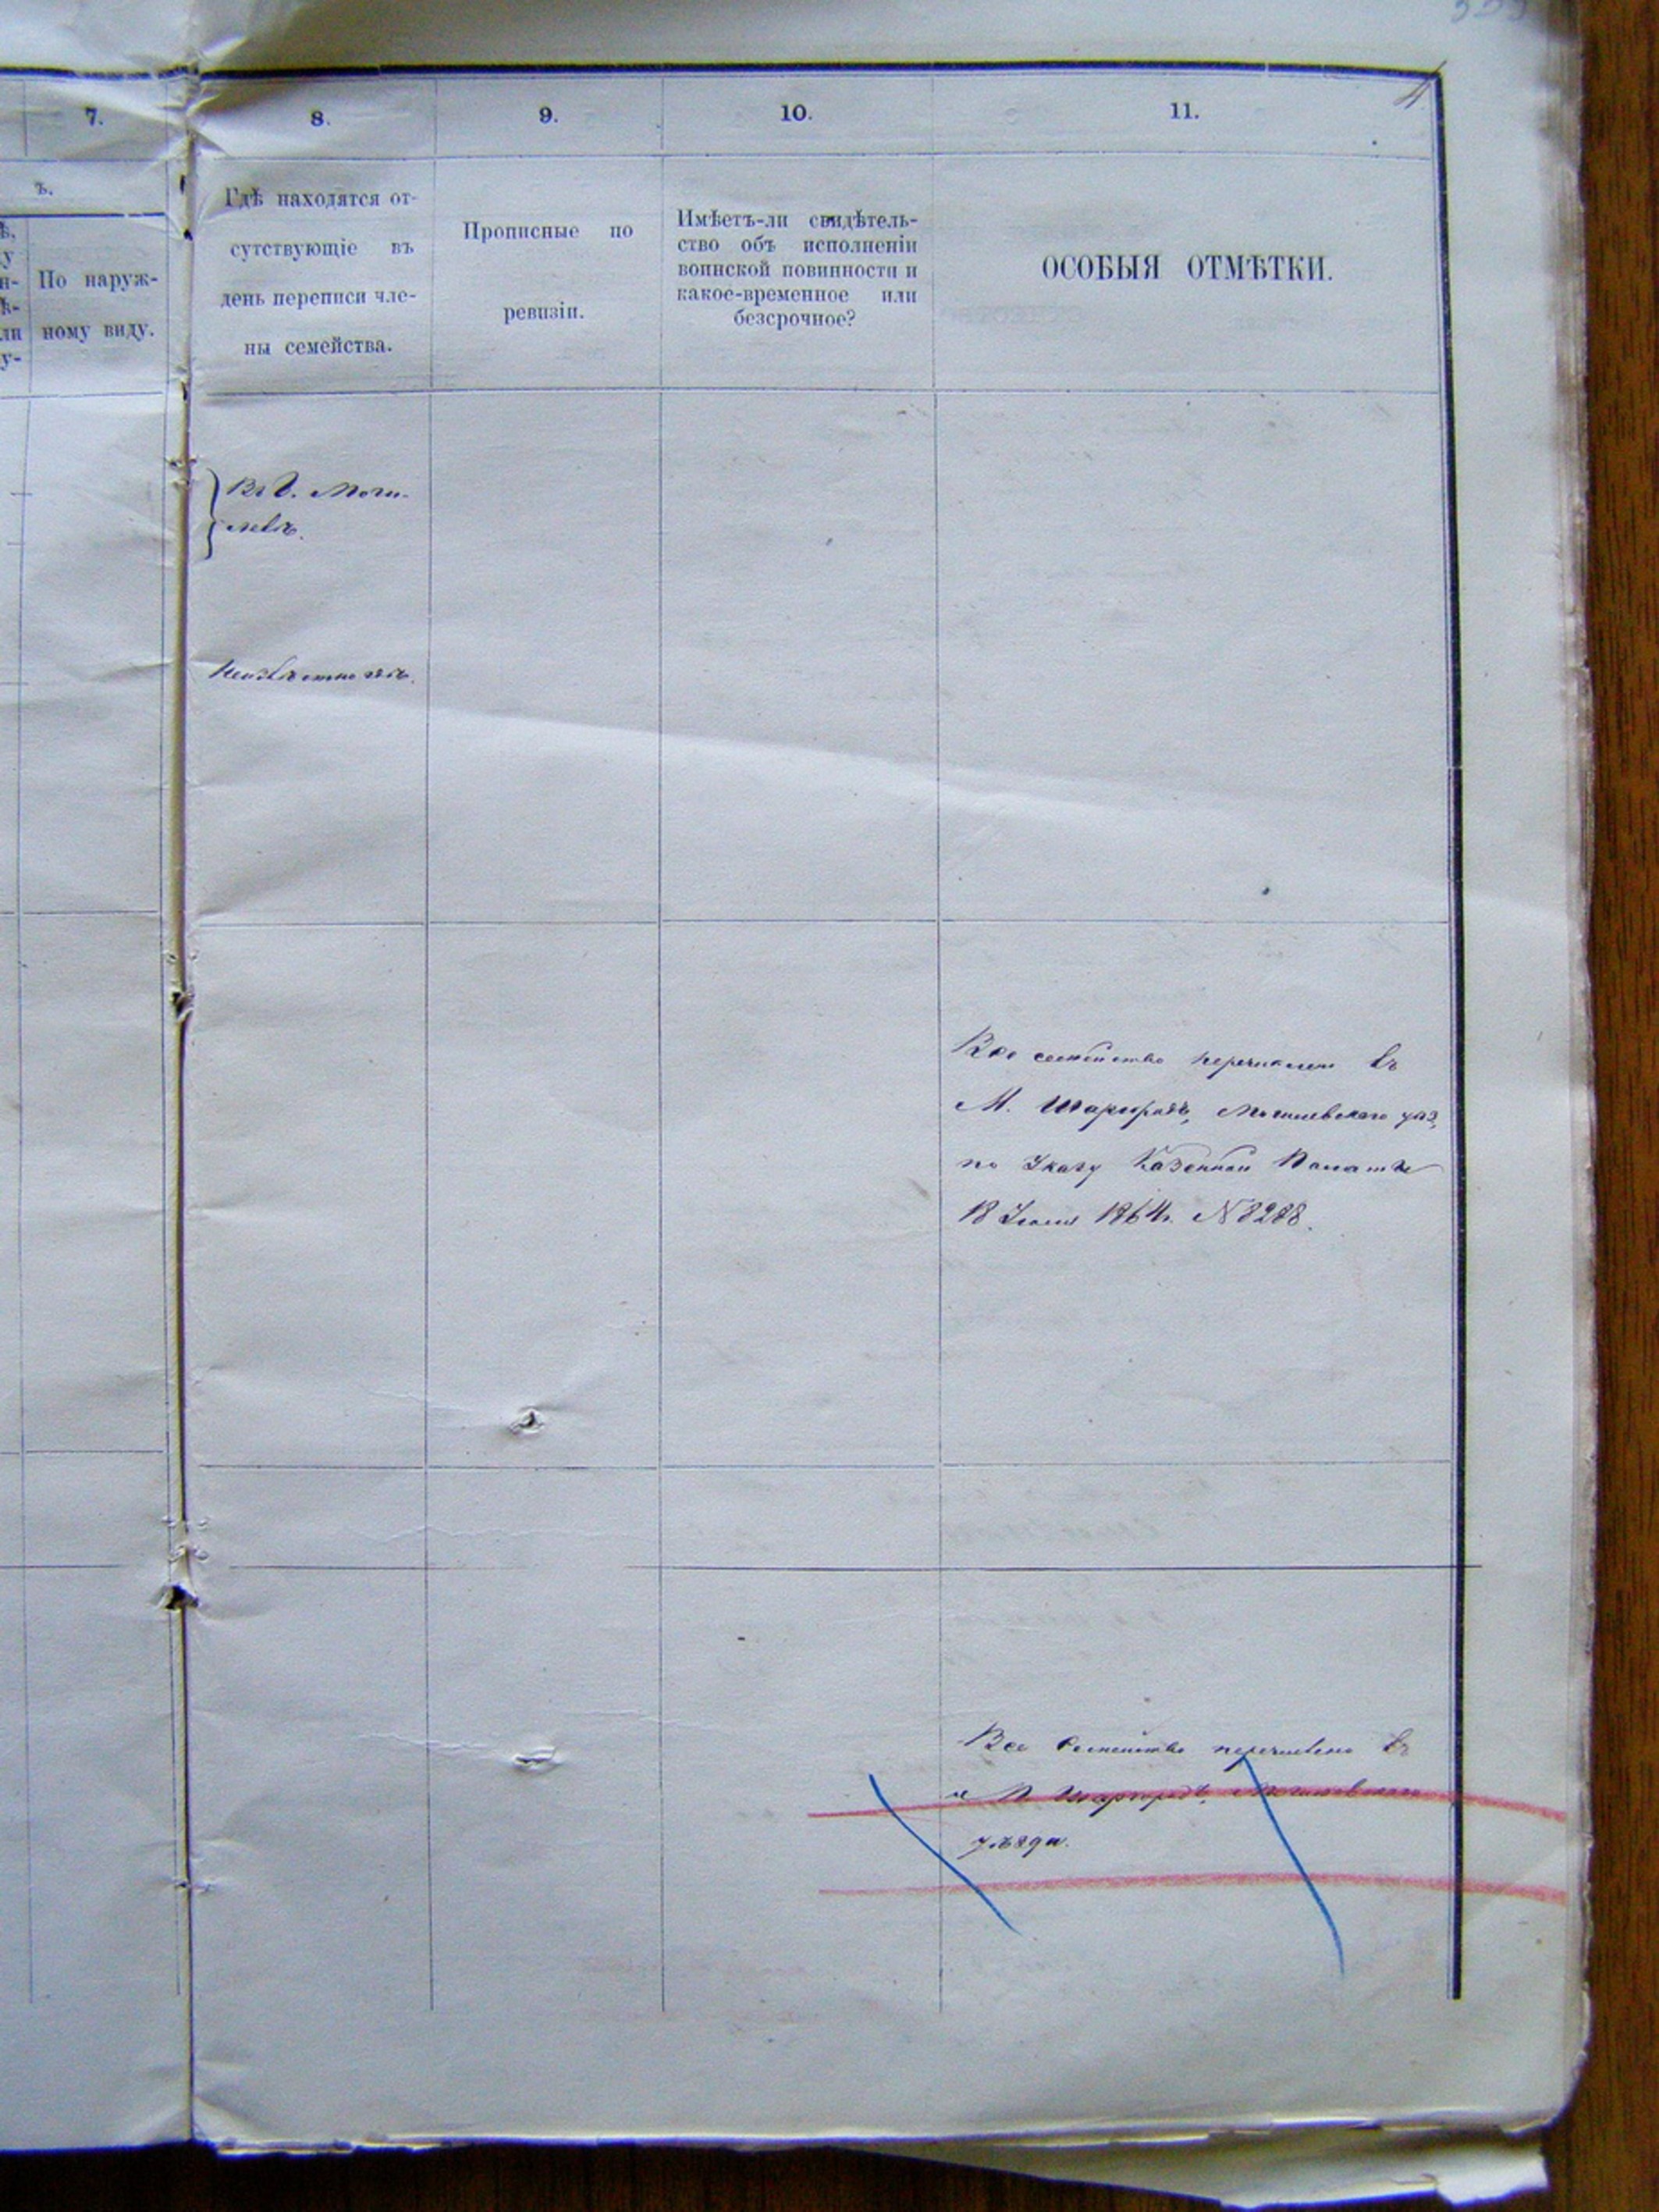 7.
8.
9.
10.
11.
ъ.
По наруж-
ному виду.
Гдѣ находятся от-
сутствующіе въ
день переписи чле-
ны семейства.
Прописные по
ревизіи.
Имѣетъ-ли свидѣтель-
ство объ исполненіи
воинской повинности и
какое-временное или
безсрочное?
ОСОБЫЯ ОТМѢТКИ.
Въ г. Моги-
левѣ.
Неизвѣстно гдѣ.
Все семейство перечислено въ
М. Шаргородъ, Могилевскаго уѣз.
по Указу Казенной Палаты
18 1864 г. № 8288.
Все семейство перечислено въ
м. Шаргородъ, Могилевскаго
уѣзда.